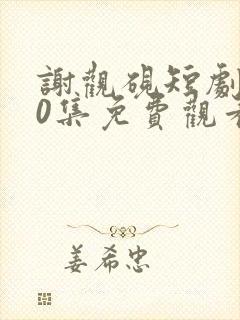 謝觀硯短劇
0集免費觀看
姜希忠